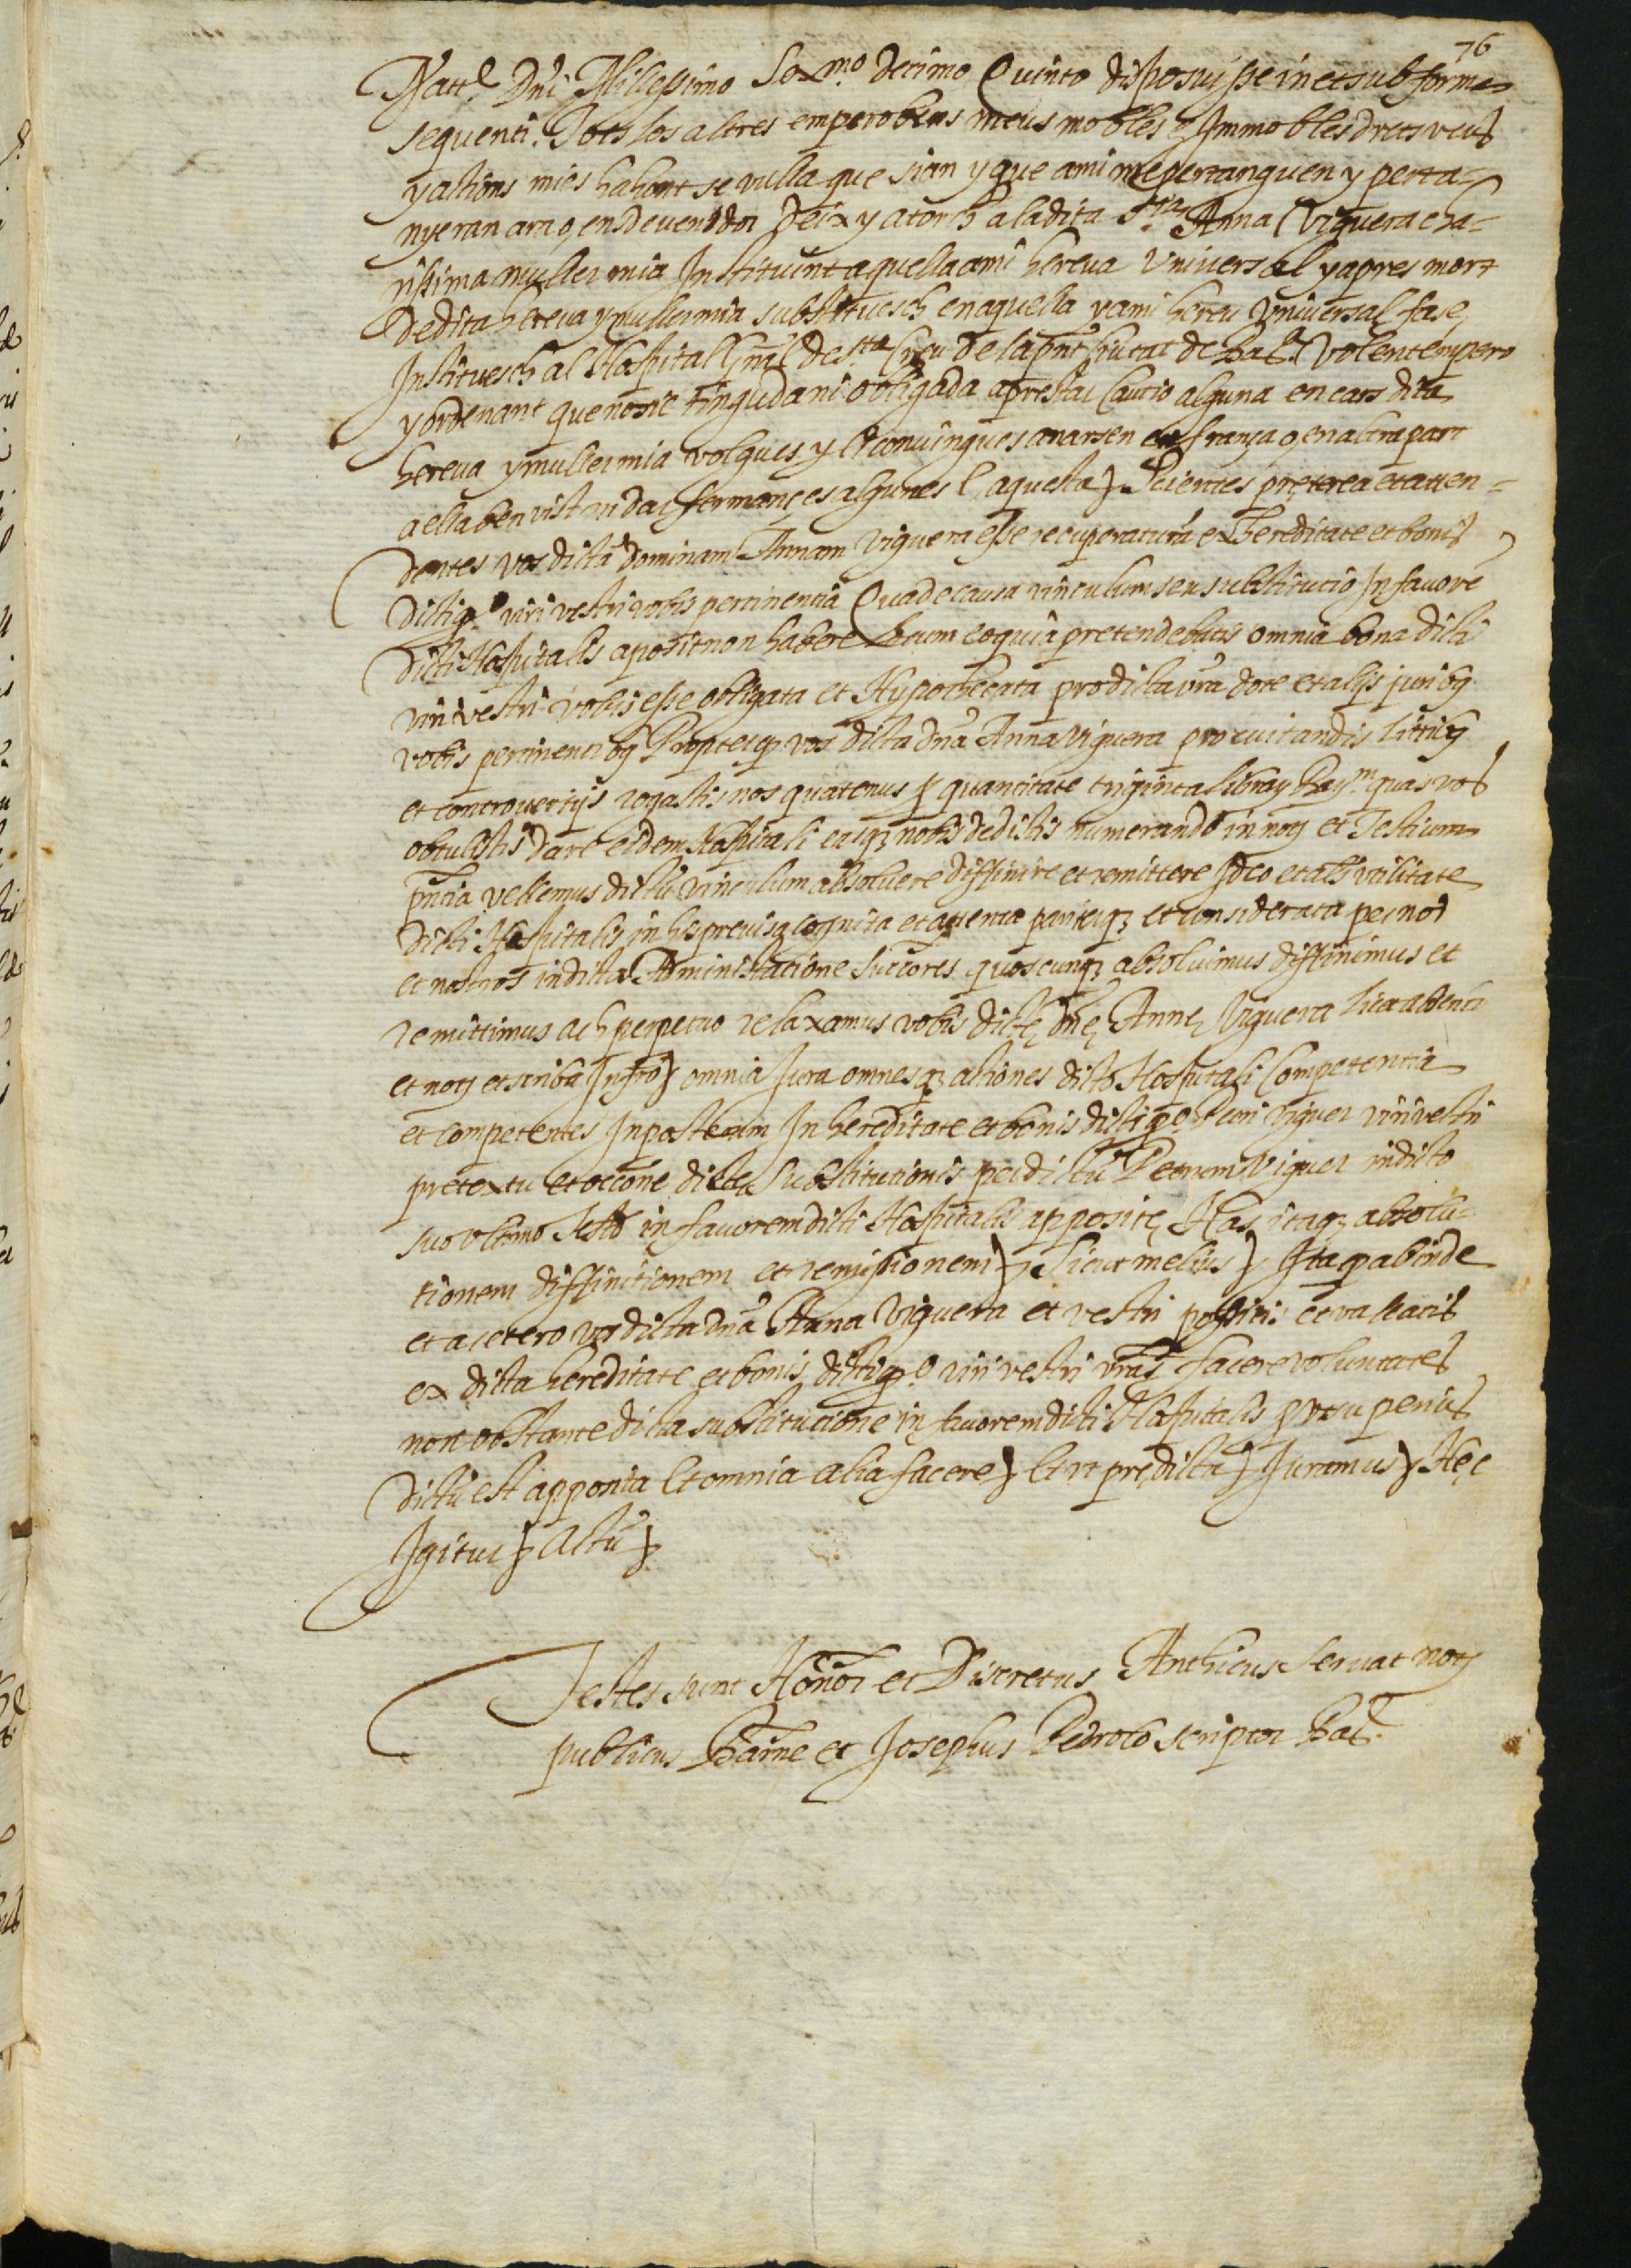 76
Natt. Dñi Millessimo Sexmo. decimo Quinto disposuisse in et sub forma
sequenti. Tots los altres empero bens meus mobles e Immobles drets veus
y actions mies hahont se vulla que sian y que a mi me pertanguen y perta-
nyeran ara o en sdevenidor deix y atorch a la dita Sra. Anna Viguera cha-
rissima muller mia Instituint aquella a mi hereva Universal y apres mort
de dita hereva y muller mia substituesch en aquella y a mi hereu universal fas e
Instituesch al Hospital Gñal de sta Creu de la pñt Ciutat de Bar. Volent empero
y ordenant que no sie tinguda ni obligada a prestar Cautio alguna en cars dita
hereva y muller mia volgues y li convingues anarsen en frança o en altra part
a ella ben vist ni dar fermançes algunes E, aquesta) Scientes pręterea et atten-
dentes vos dictã dominam Annam Viguera esse recuperaturã ex hereditate et bonis
dicti qo. viri vestri vobis pertinentia Qua de causa vinculum seu substitutio In favorẽ
dicti Hospitalis aposit non habere locum eo quia pretendebatis omnia bona dicti
viri vestri vobis esse obligata et Hypothecata pro dicta vrã dote et alijs juribq
vobis pertinentibq Propterq vos dicta dnã Anna Viguera pro evitandis litibq
et controversijs rogastis nos quatenus p quantitate triginta libray Bay.m quas vos
obtulistis dare eidem Hospitali easq nobis dedistis numerando in noy et Testium
pñtia vellemus dictũ vinculum absolvere diffinire et remittere Ideo et als utilitate
dicti Hospitalis in his previsa cognita et attenta pariterq et considerata per nos
et nostros in dicta Administratione Succores quoscunq absolvimus diffinimus et
remittimus ac h perpetuo relaxamus vobis dictę dnę Annę Viguera licet absenti
et noty et scriba Infro) omnia Jura omnesq actiones dicto Hospitali Competentia
et competentes In posterum In hereditate et bonis dicti qo. Petri Viguer viri vestri
pretextu et occone dicte Substitutionis per dictũ Petrum Viguer in dicto
suo ultimo Testo in favorem dicti Hospitalis appositę Has itaq absolu-
tionem diffinitionem et remissionem) Sicut melius) Ita q ab inde
et a cetero vos dicta dnã Anna Viguera et vestri possitis et valeatis
ex dicta hereditate et bonis dicti qo. viri vestri vrãs facere voluntates
non obstante dicta substitutione in favorem dicti Hospitalis prout superius
dictũ est apponita Et omnia alia facere) Et ut prędicta) Juramus) Hęc
Igitur) Actũ)
Testes sunt Honor et Discretus Anthicus Servat noty
publicus Barñe et Josephus Pedrolo scriptor Bar.